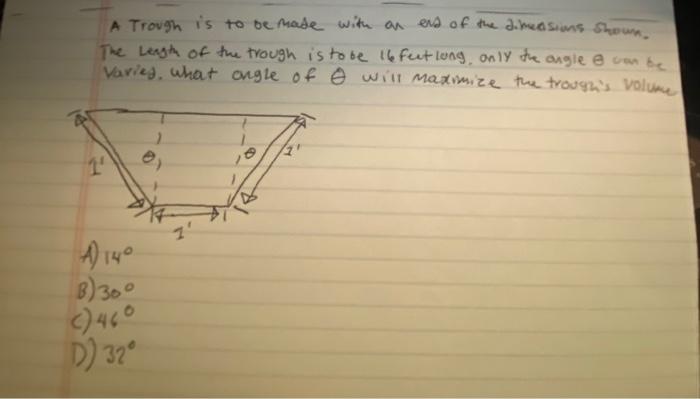 A Trough is to be made with an end of the dimensions shown.
The Length of the trough is to be 16 feet long, only the angle θ can be
varied. what angle of θ will maximize the trough's volume
1'
θ
θ
1'
1'
A) 14°
B) 30°
C) 46°
D) 32°